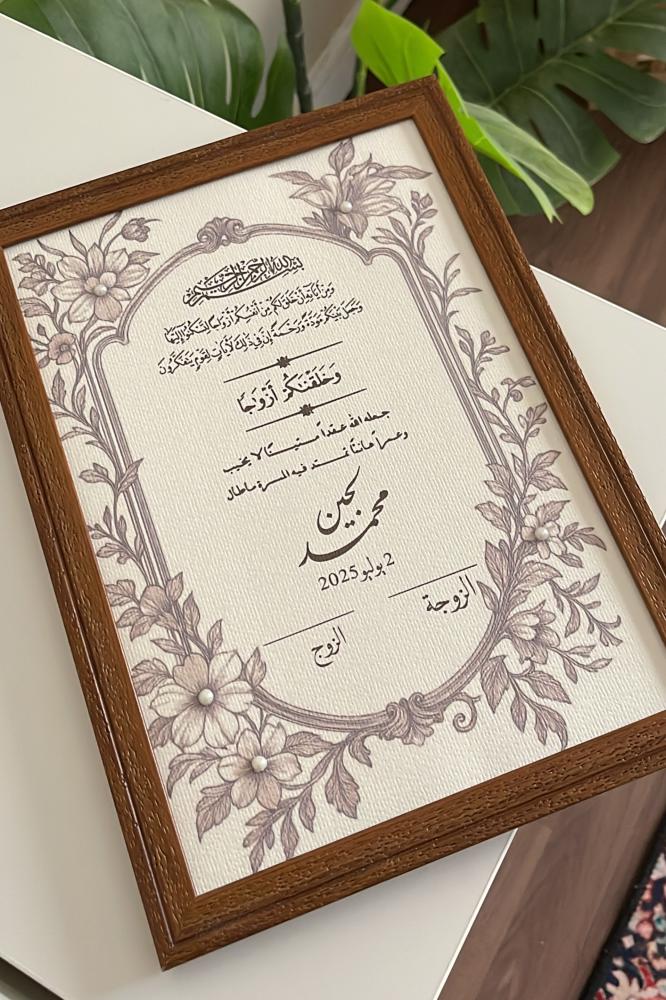 بسم الله الرحمن الرحيم
وَمِنْ آيَاتِهِ أَنْ خَلَقَ لَكُم مِّنْ أَنفُسِكُمْ أَزْوَاجًا لِّتَسْكُنُوا إِلَيْهَا
وَجَعَلَ بَيْنَكُم مَّوَدَّةً وَرَحْمَةً إِنَّ فِي ذَٰلِكَ لَآيَاتٍ لِّقَوْمٍ يَتَفَكَّرُونَ
وَخَلَقْنَكُمْ أَزْوَٰجًا
جعله الله عقداً متيناً لا يخيب
وعمراً هانئاً تمتد فيه المسرة ماطال
لجين
محمد
2 يوليو 2025
الزوجة
الزوج